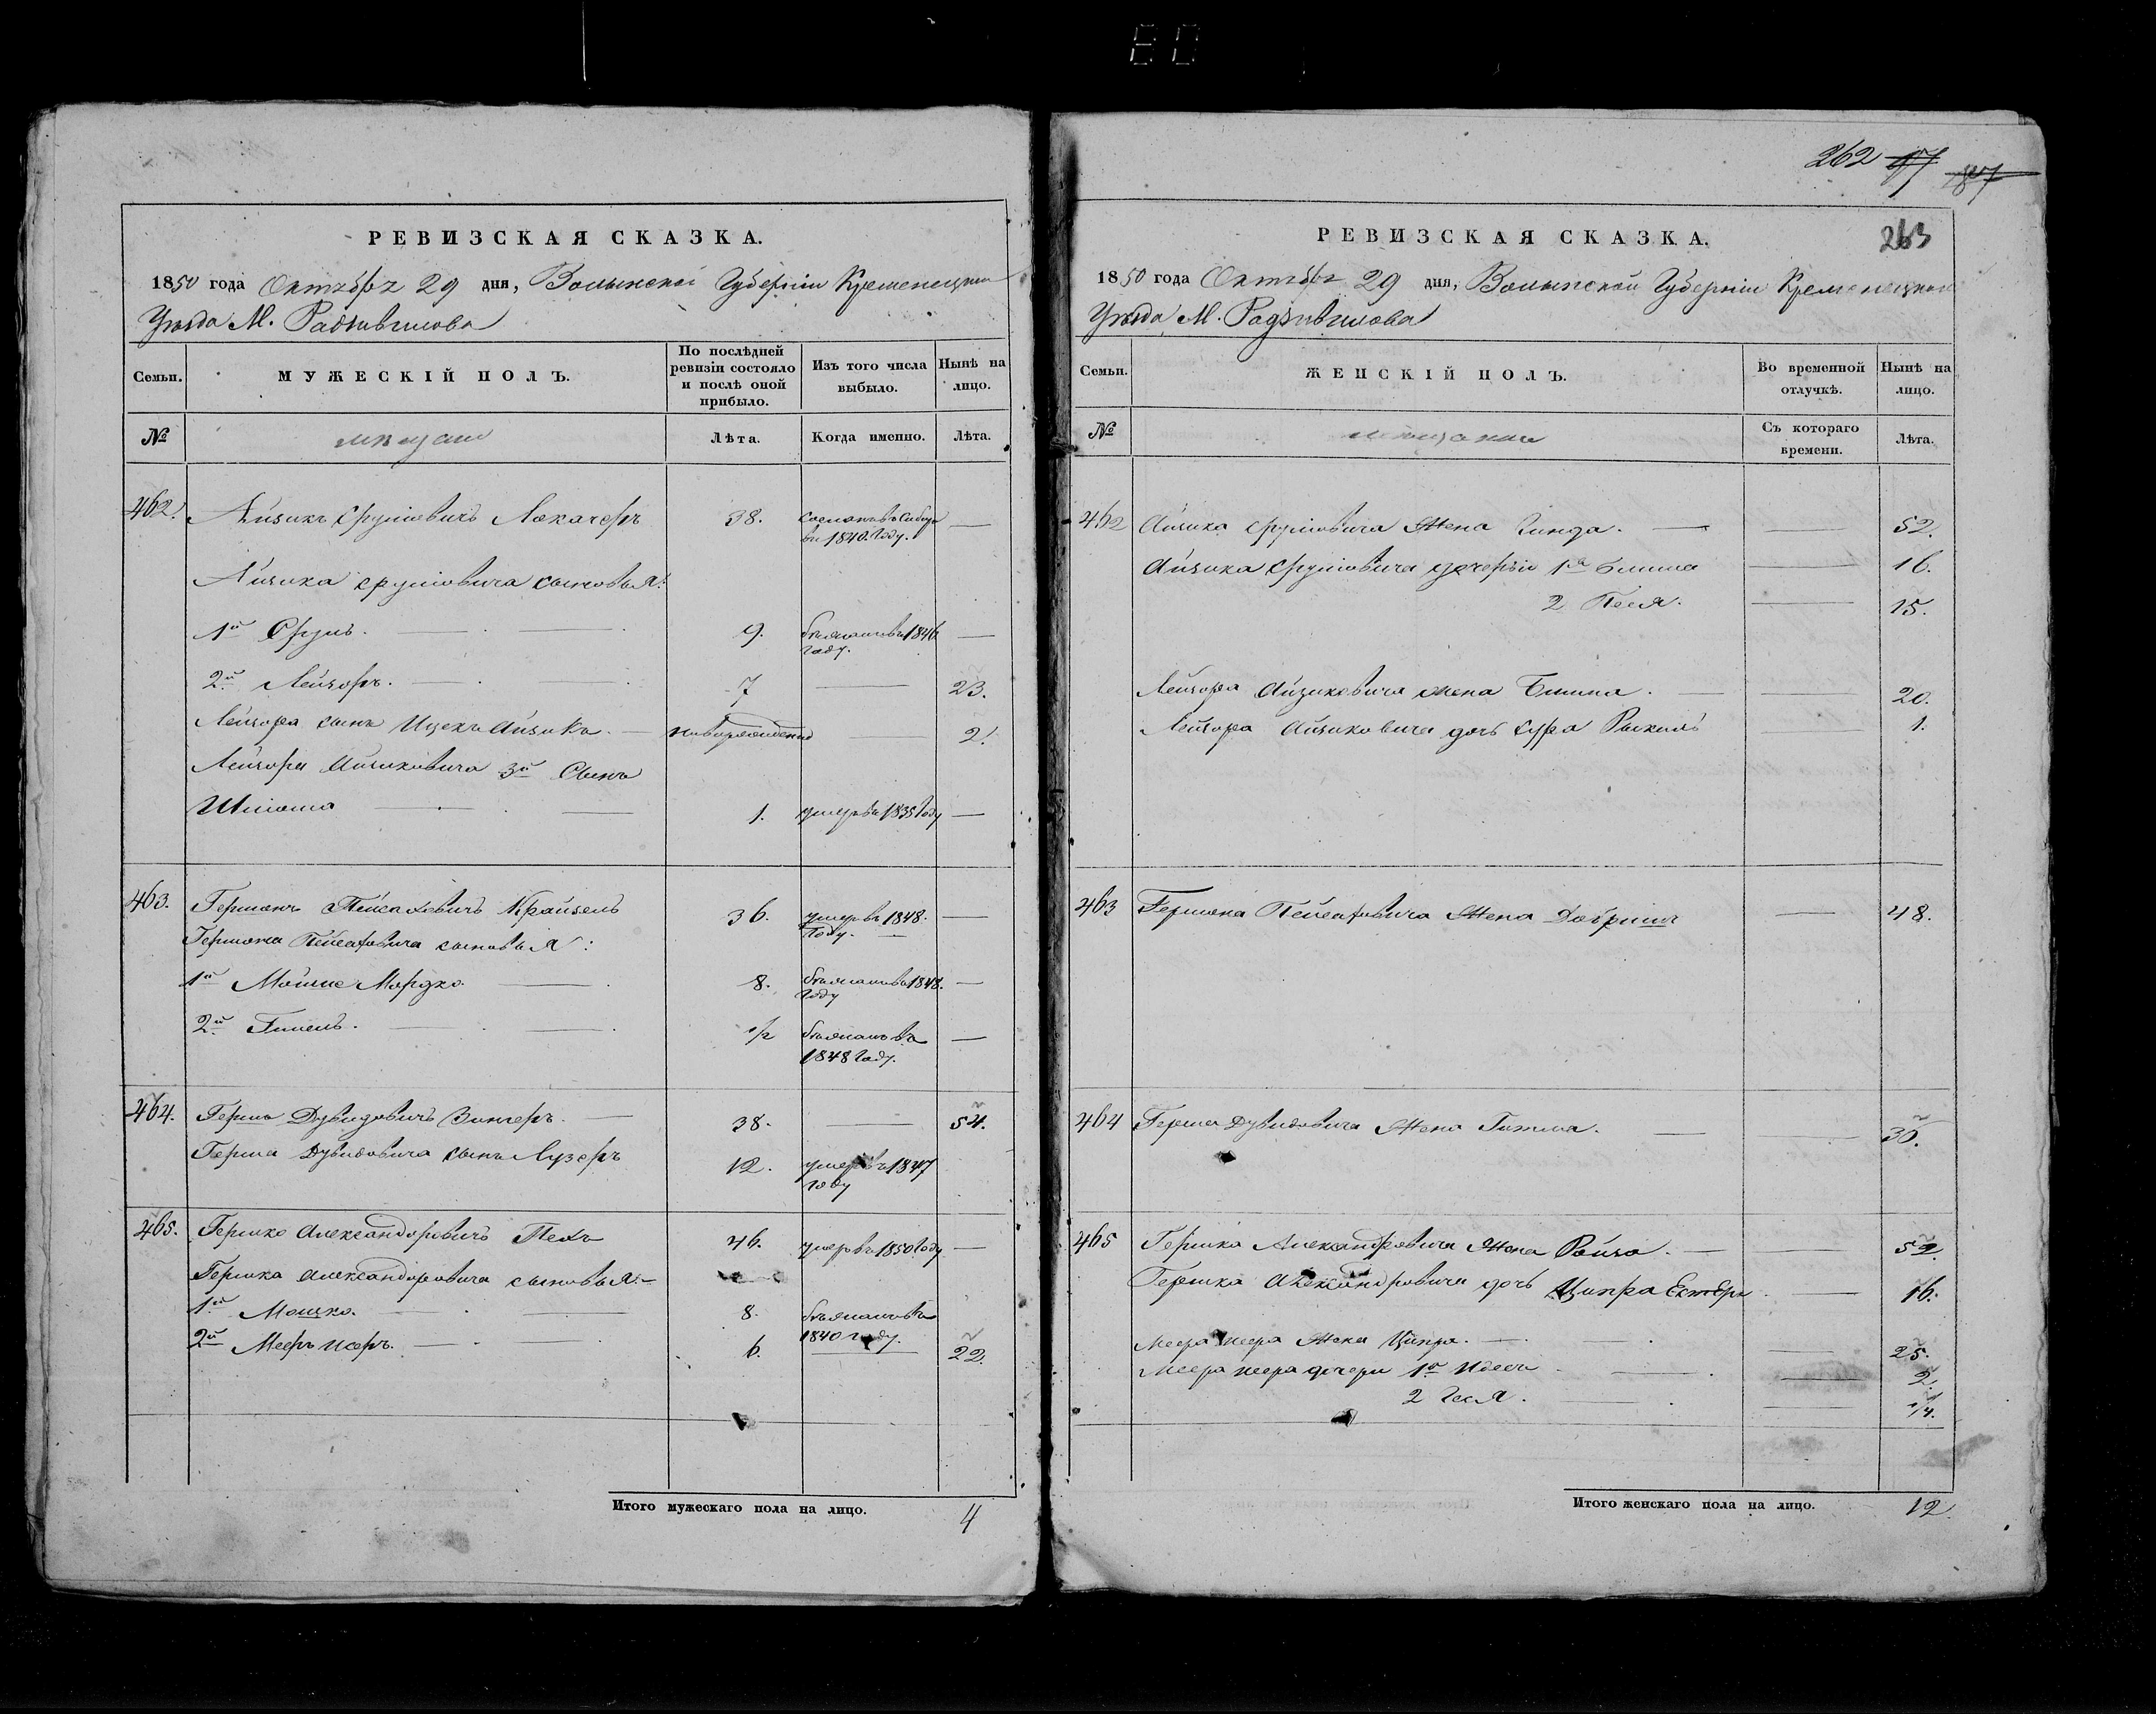 РЕВИЗСКАЯ СКАЗКА.
1850 года Октября 29 дня, Волынской Губерніи Кременецкаго
Уѣзда М. Радзивилова
Семьи.
МУЖЕСКІЙ ПОЛЪ.
По послѣдней ревизіи состояло и послѣ оной прибыло.
Изъ того числа выбыло.
Нынѣ на лицо.
№
мѣщане
Лѣта.
Когда именно.
Лѣта.
462. Айзикъ Сруліовичъ Локачеръ 38. сосланъ въ Сибирь —
въ 1840. Году.
Айзика Сруліовича сыновья:
1й Сруль. 9. бѣжалъ въ 1846 —
году.
2й Лейзоръ. 7 — 23.
Лейзора сынъ Ицекъ Айзикъ. — новорожденный — 2.
Лейзора Айзиковича 3й Сынъ
Шліома 1. умеръ въ 1835 Году —
463. Гершонъ Пейсаховичъ Крайзель 36. умеръ въ 1848. —
Году.
Гершона Пейсаховича сыновья:
1й Мойше Мордко. 8. бѣжалъ въ 1848. —
Году
2й Гимель. 1/2 бѣжалъ въ —
1848 Году.
464. Герш Дувидовичъ Зингеръ. 38. — 54.
Герша Дувидовича сынъ Лузеръ 12. умеръ въ 1847
Году
465. Гершко Александровичъ Пехъ 46. умеръ въ 1850 Году —
Гершка Александровича сыновья:
1й Мошко. 8. бѣжалъ въ
1840 году.
2й Мееръ Исеръ. 6. — 22.
Итого мужескаго пола на лицо. 4
262 97 187
РЕВИЗСКАЯ СКАЗКА. 263
1850 года Октября 29 дня, Волынской Губерніи Кременецкаго
Уѣзда М. Радзивилова
Семьи.
ЖЕНСКІЙ ПОЛЪ.
Во временной отлучкѣ.
Нынѣ на лицо.
№
мѣщанки
Съ котораго времени.
Лѣта.
462 Айзика Сруліовича Жена Гинда. — 52.
Айзика Сруліовича дочери 1я Блима — 16.
2 Песя. — 15.
Лейзора Айзиковича жена Блима. — 20.
Лейзора Айзиковича дочь Сура Рыкель — 1.
463 Гершона Пейсаховича Жена Добриш — 48.
464 Герша Дувидовича Жена Гитля. — 30.
465 Гершка Александровича Жена Ройза. — 52.
Гершка Александровича дочь Ципра Естеръ. — 16.
Меера Исера Жена Ципра. — 25.
Меера Исера дочери 1я Идесъ — 2
2 Гися. — 1/4.
Итого женскаго пола на лицо. 12.